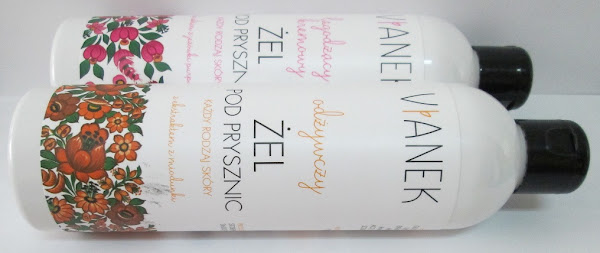 VIANEK
odżywczy
ŻEL
POD PRYSZNIC
KAŻDY RODZAJ SKÓRY
z ekstraktem z miodunki
VIANEK
łagodzący
kremowy
ŻEL
POD PRYSZNIC
KAŻDY RODZAJ SKÓRY